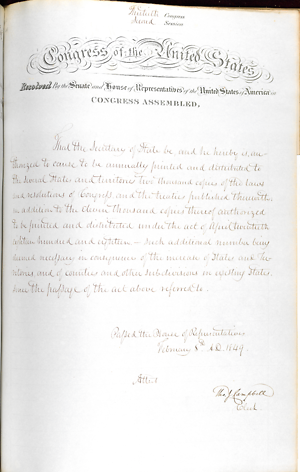 Thirtieth Congress
Second Session
Congress of the United States
Resolved by the Senate and House of Representatives of the United States of America in
CONGRESS ASSEMBLED,
That the Secretary of State be and he hereby is au-
thorized to cause to be annually printed and distributed to
the several States and territories two thousand copies of the laws
and resolutions of Congress and the treaties published therewith,
in addition to the eleven thousand copies thereof authorized
to be printed and distributed under the act of April twentieth
eighteen hundred and eighteen – such additional number being
found necessary in consequence of the increase of States and Ter-
ritories and of counties and other subdivisions in existing States
since the passage of the act above referred to.
Passed the House of Representatives
February 8th A.D. 1849.
Attest
Tho. J. Campbell
Clerk